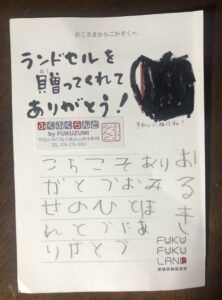 おこさまからごかぞくへ
ランドセルを
贈ってくれて
ありがとう!
きれいにぬってね!
ふくふくらんど
by FUKUZUMI
こちらこそあり
がとうおみ
せのひとほ
んとうにあ
りがとう
FUKU
FUKU
LAND